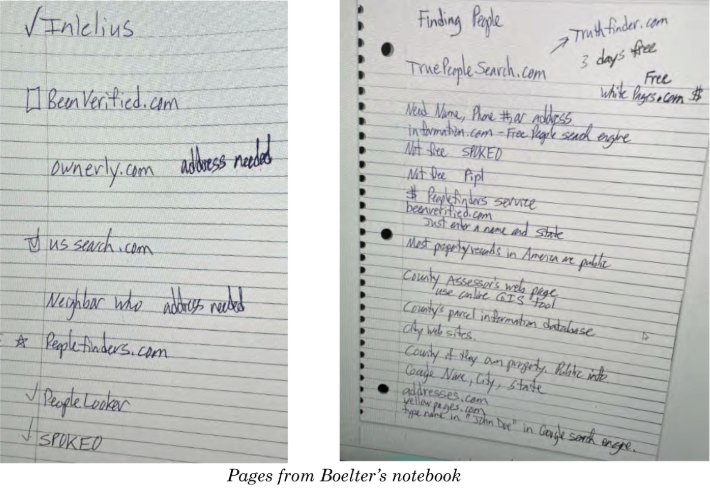 ✓ Intelius
☐ BeenVerified.com
ownerly.com address needed
☑ us search.com
Neighbor who address needed
☆ Peoplefinders.com
✓ PeopleLooker
✓ SPOKEO
Finding People
→ Truthfinder.com
3 days free
TruePeopleSearch.com
Free
White Pages.com $
Need Name, Phone # or address
information.com - Free People search engine
Not free SPOKEO
Not free Pipl
$ Peoplefinders service
beenverified.com
Just enter a name and state
Most property records in America are public
County Assessor's web page
use online GIS tool
County's parcel information database
city web sites.
County if they own property. Public info
Google Name, City, State
addresses.com
yellowpages.com
type name in "John Doe" in Google search engine.
Pages from Boelter's notebook